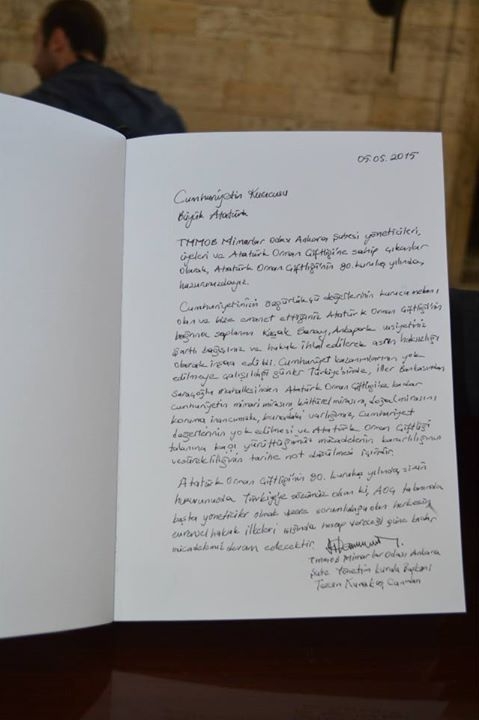 05.05.2015
Cumhuriyetin Kurucusu
Büyük Atatürk
TMMOB Mimarlar Odası Ankara Şubesi yöneticileri,
üyeleri ve Atatürk Orman Çiftliği'ne sahip çıkanlar
olarak, Atatürk Orman Çiftliği'nin 90. kuruluş yılında,
huzurunuzdayız.
Cumhuriyetimizin özgürlükçü değerlerinin kurucu mekanı
olan ve bize emanet ettiğiniz Atatürk Orman Çiftliği'nin
bağrına saplanan Kaçak Saray, Ankapark vasiyetiniz
şartlı bağışınız ve hukuk ihlal edilerek asrın haksızlığı
olarak inşaa edildi. Cumhuriyet kazanımlarının yok
edilmeye çalışıldığı günler Türkiye'sinde, İller Bankasından
Saraçoğlu Mahallesinden Atatürk Orman Çiftliğine kadar
cumhuriyetin mimari mirasını, kültürel mirasını, doğal mirasını
koruma inancımızla, buradaki varlığımız, Cumhuriyet
değerlerinin yok edilmesi ve Atatürk Orman Çiftliği
talanına karşı yürüttüğümüz mücadelenin kararlılığının
ve sürekliliğinin tarihe not düşülmesi içindir.
Atatürk Orman Çiftliği'nin 90. kuruluş yılında, sizin
huzurunuzda Türkiye'ye sözümüz olsun ki, AOÇ talanında
başta yöneticiler olmak üzere sorumluluğu olan herkesin
evrensel hukuk ilkeleri ışığında hesap vereceği güne kadar
mücadelemiz devam edecektir.
TMMOB Mimarlar Odası Ankara
Şube Yönetim Kurulu Başkanı
Tezcan Karakuş Candan